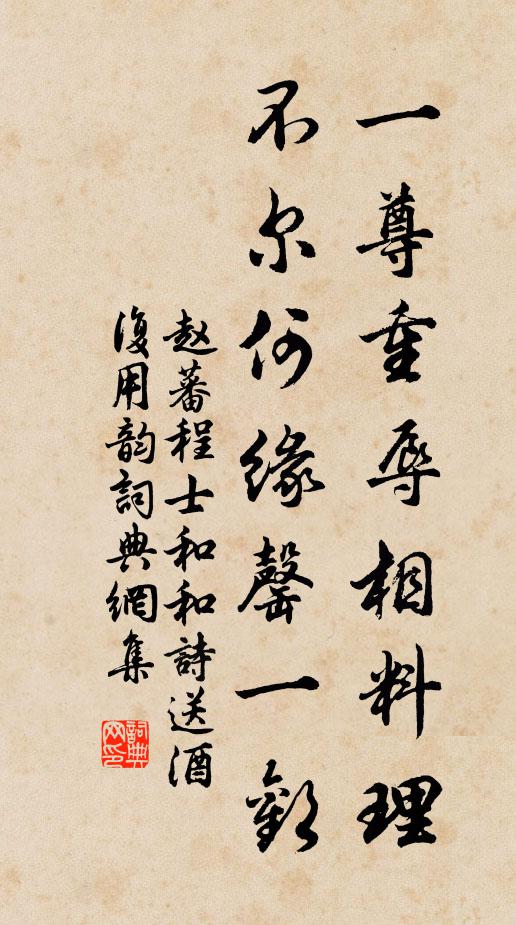 一尊重辱相料理
不尔何缘罄一歡
赵蕃程士和和詩送酒
復用韵詞典網集
詞典
网印